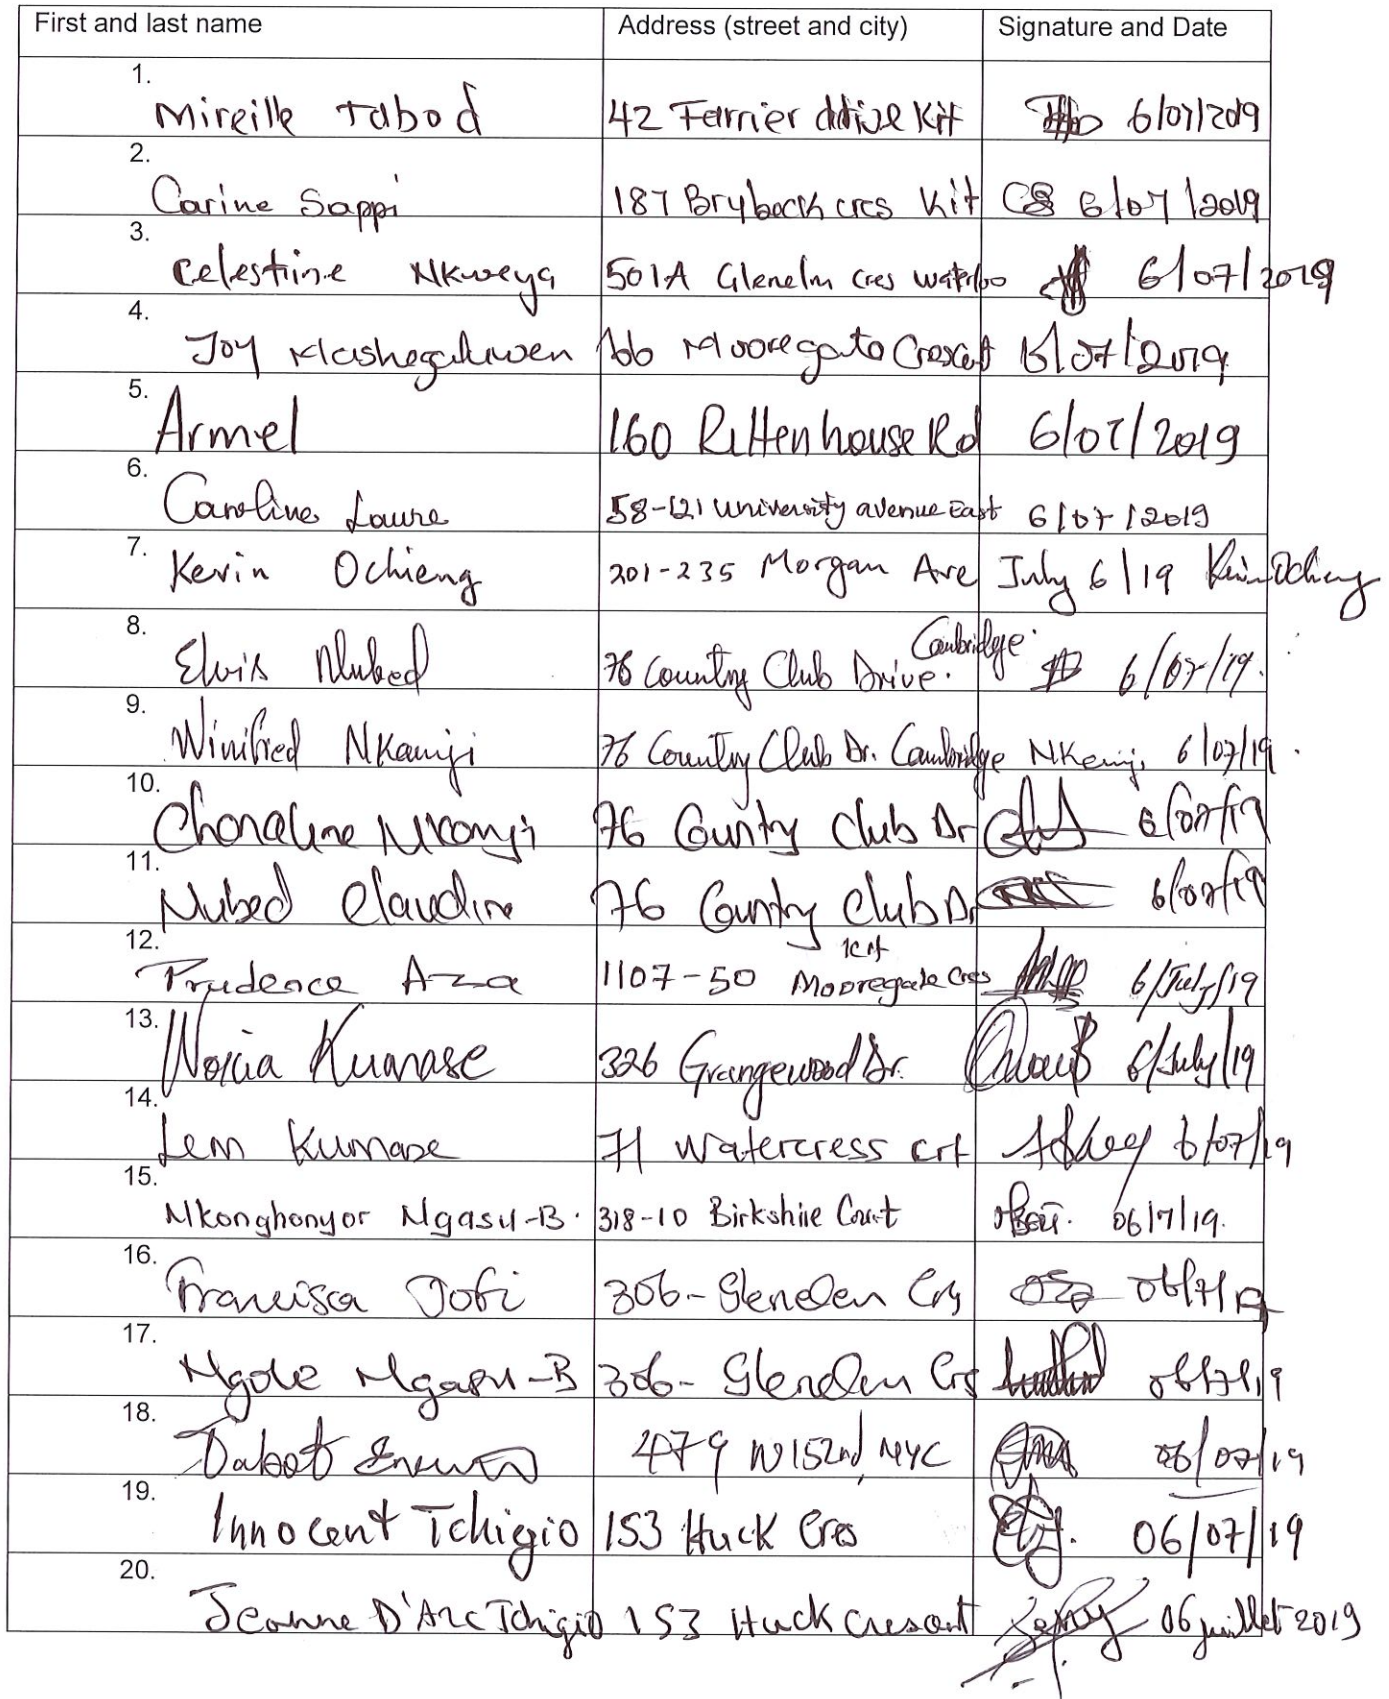 First and last name Address (street and city) Signature and Date
1. Mireille Tabod 42 Ferrier drive Kit 6/07/2019
2. Carine Sappi 187 Brybeck cres Kit CS 6/07/2019
3. Celestine Nkweya 501A Glenelm Cres Waterloo 6/07/2019
4. Joy 166 Mooregate Crescent 6/07/2019
5. Armel 160 Rittenhouse Rd 6/07/2019
6. Caroline Laure 58-121 University avenue East 6/07/2019
7. Kevin Ochieng 201-235 Morgan Ave July 6/19 Kevin Ochieng
8. Elvis Nubed 76 Country Club Drive. Cambridge 6/07/19.
9. Winifred Nkamji 76 Country Club Dr. Cambridge Nkemji 6/07/19.
10. 76 County Club Dr 6/07/19
11. Nubed Claudine 76 Country Club Dr 6/07/19
12. Prudence Aza 1107-50 Mooregate Cres Kit 6/July/19
13. Kumase 326 Grangewood Dr. 6/July/19
14. Lem Kumase 71 Watercress crt 6/07/19
15. Nkonghonyor Ngasu-B. 318-10 Birkshire Court 06/7/19.
16. Francisca Jofi 306- Glenelen Crs 06/7/19
17. Ngole Ngasu-B 306- Glenelen Crs 06/7/19
18. Dabot 479 W152nd, NYC 06/07/19
19. Innocent Tchigio 153 Huck Cres 06/07/19
20. Jeanne D'Arc Tchigio 153 Huck Cresent 06 juillet 2019